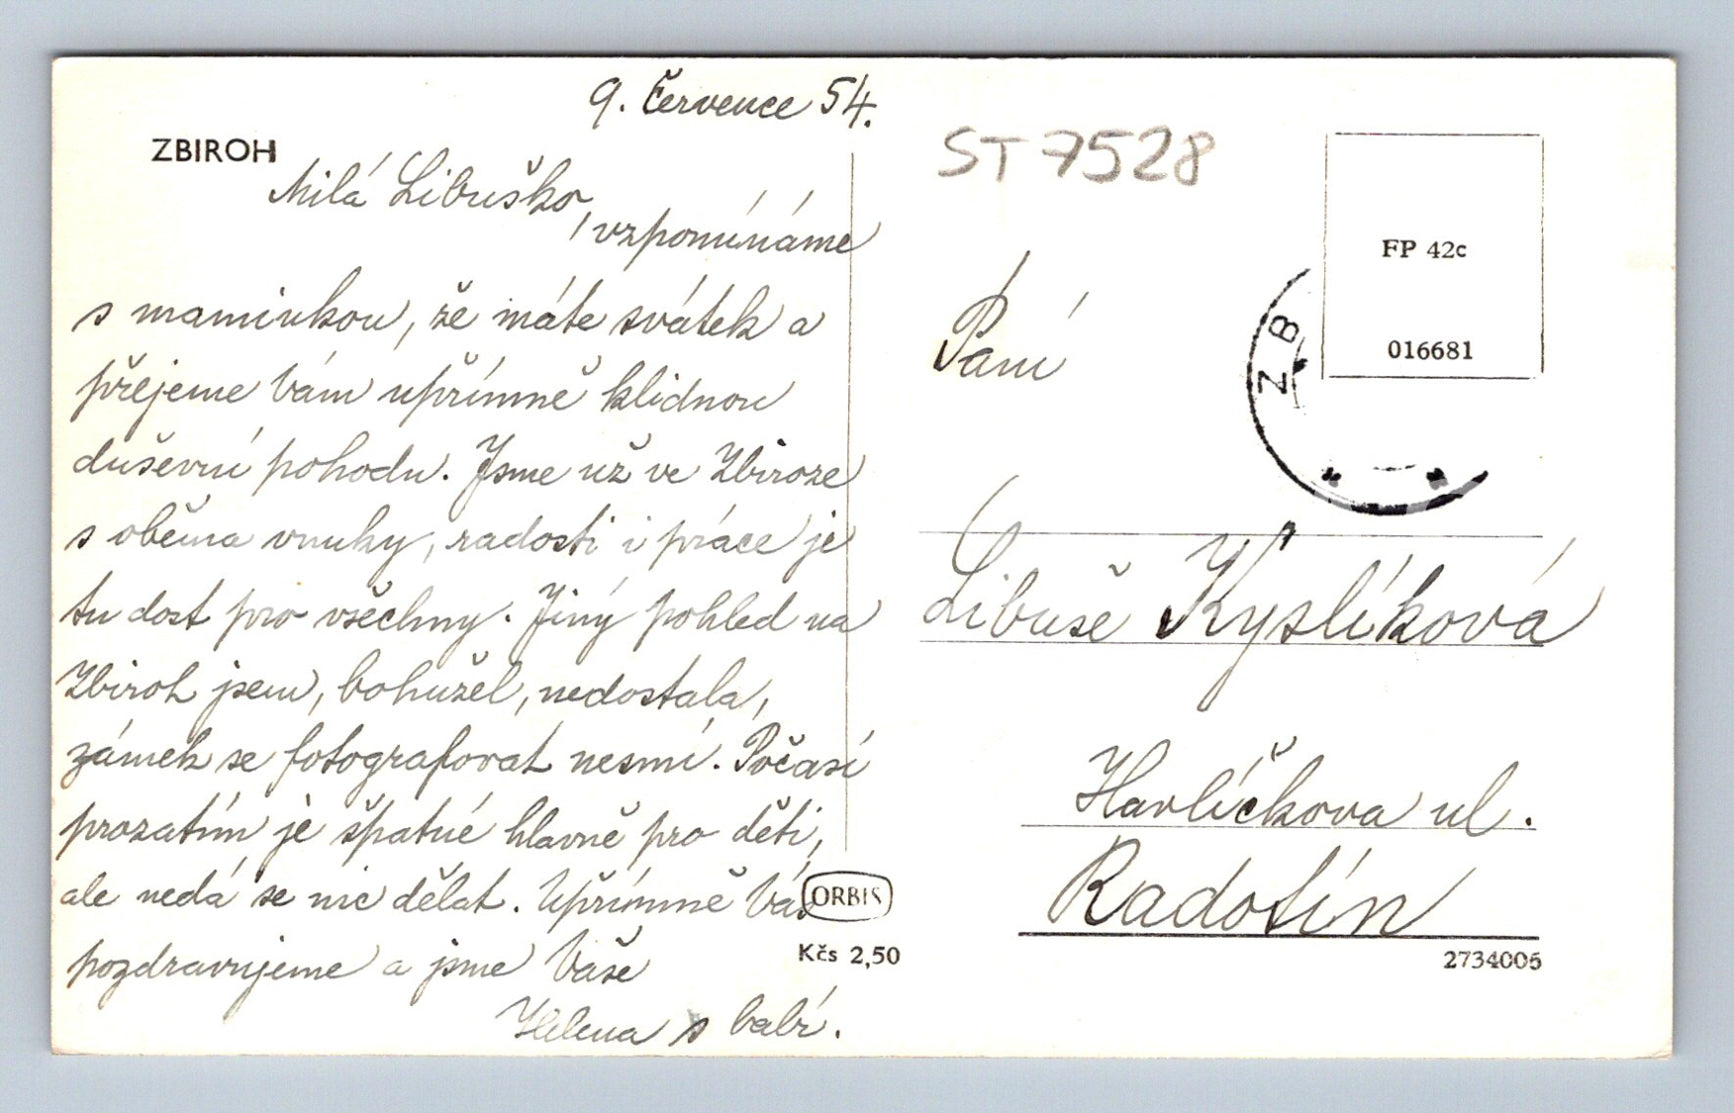 9. července 54.
ZBIROH
Milá Libuško,
vzpomínáme
s maminkou, že máte svátek a
přejeme Vám upřímně klidnou
duševní pohodu. Jsme už ve Zbiroze
s oběma vnuky, radosti i práce je
tu dost pro všechny. Jiný pohled na
Zbiroh jsem, bohužel, nedostala,
zámek se fotografovat nesmí. Počasí
prozatím je špatné hlavně pro děti,
ale nedá se nic dělat. Upřímně Vás
pozdravujeme a jsme Vaše
Helena s babí.
ORBIS
Kčs 2,50
ST 7528
FP 42c
016681
ZB
Paní
Libuše Kyslíková
Havlíčkova ul.
Radotín
2734005